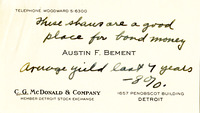 TELEPHONE WOODWARD 5-6300
These shares are a good
place for bond money
AUSTIN F. BEMENT
Average yield last 7 years
— 8%.
C. G. MCDONALD & COMPANY
MEMBER DETROIT STOCK EXCHANGE
1657 PENOBSCOT BUILDING
DETROIT